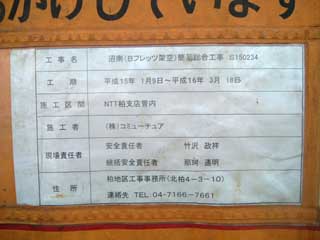 おかけしています
工事名 沼南(Bフレッツ架空)簡易総合工事 S150234
工期 平成15年 1月9日～平成16年 3月 18日
施工区間 NTT柏支店管内
施工者 (株)コミューチュア
現場責任者 安全責任者 竹沢 政祥
統括安全責任者 那珂 進明
住所 柏地区工事事務所(北柏4－3－10)
連絡先 TEL 04-7166-7661